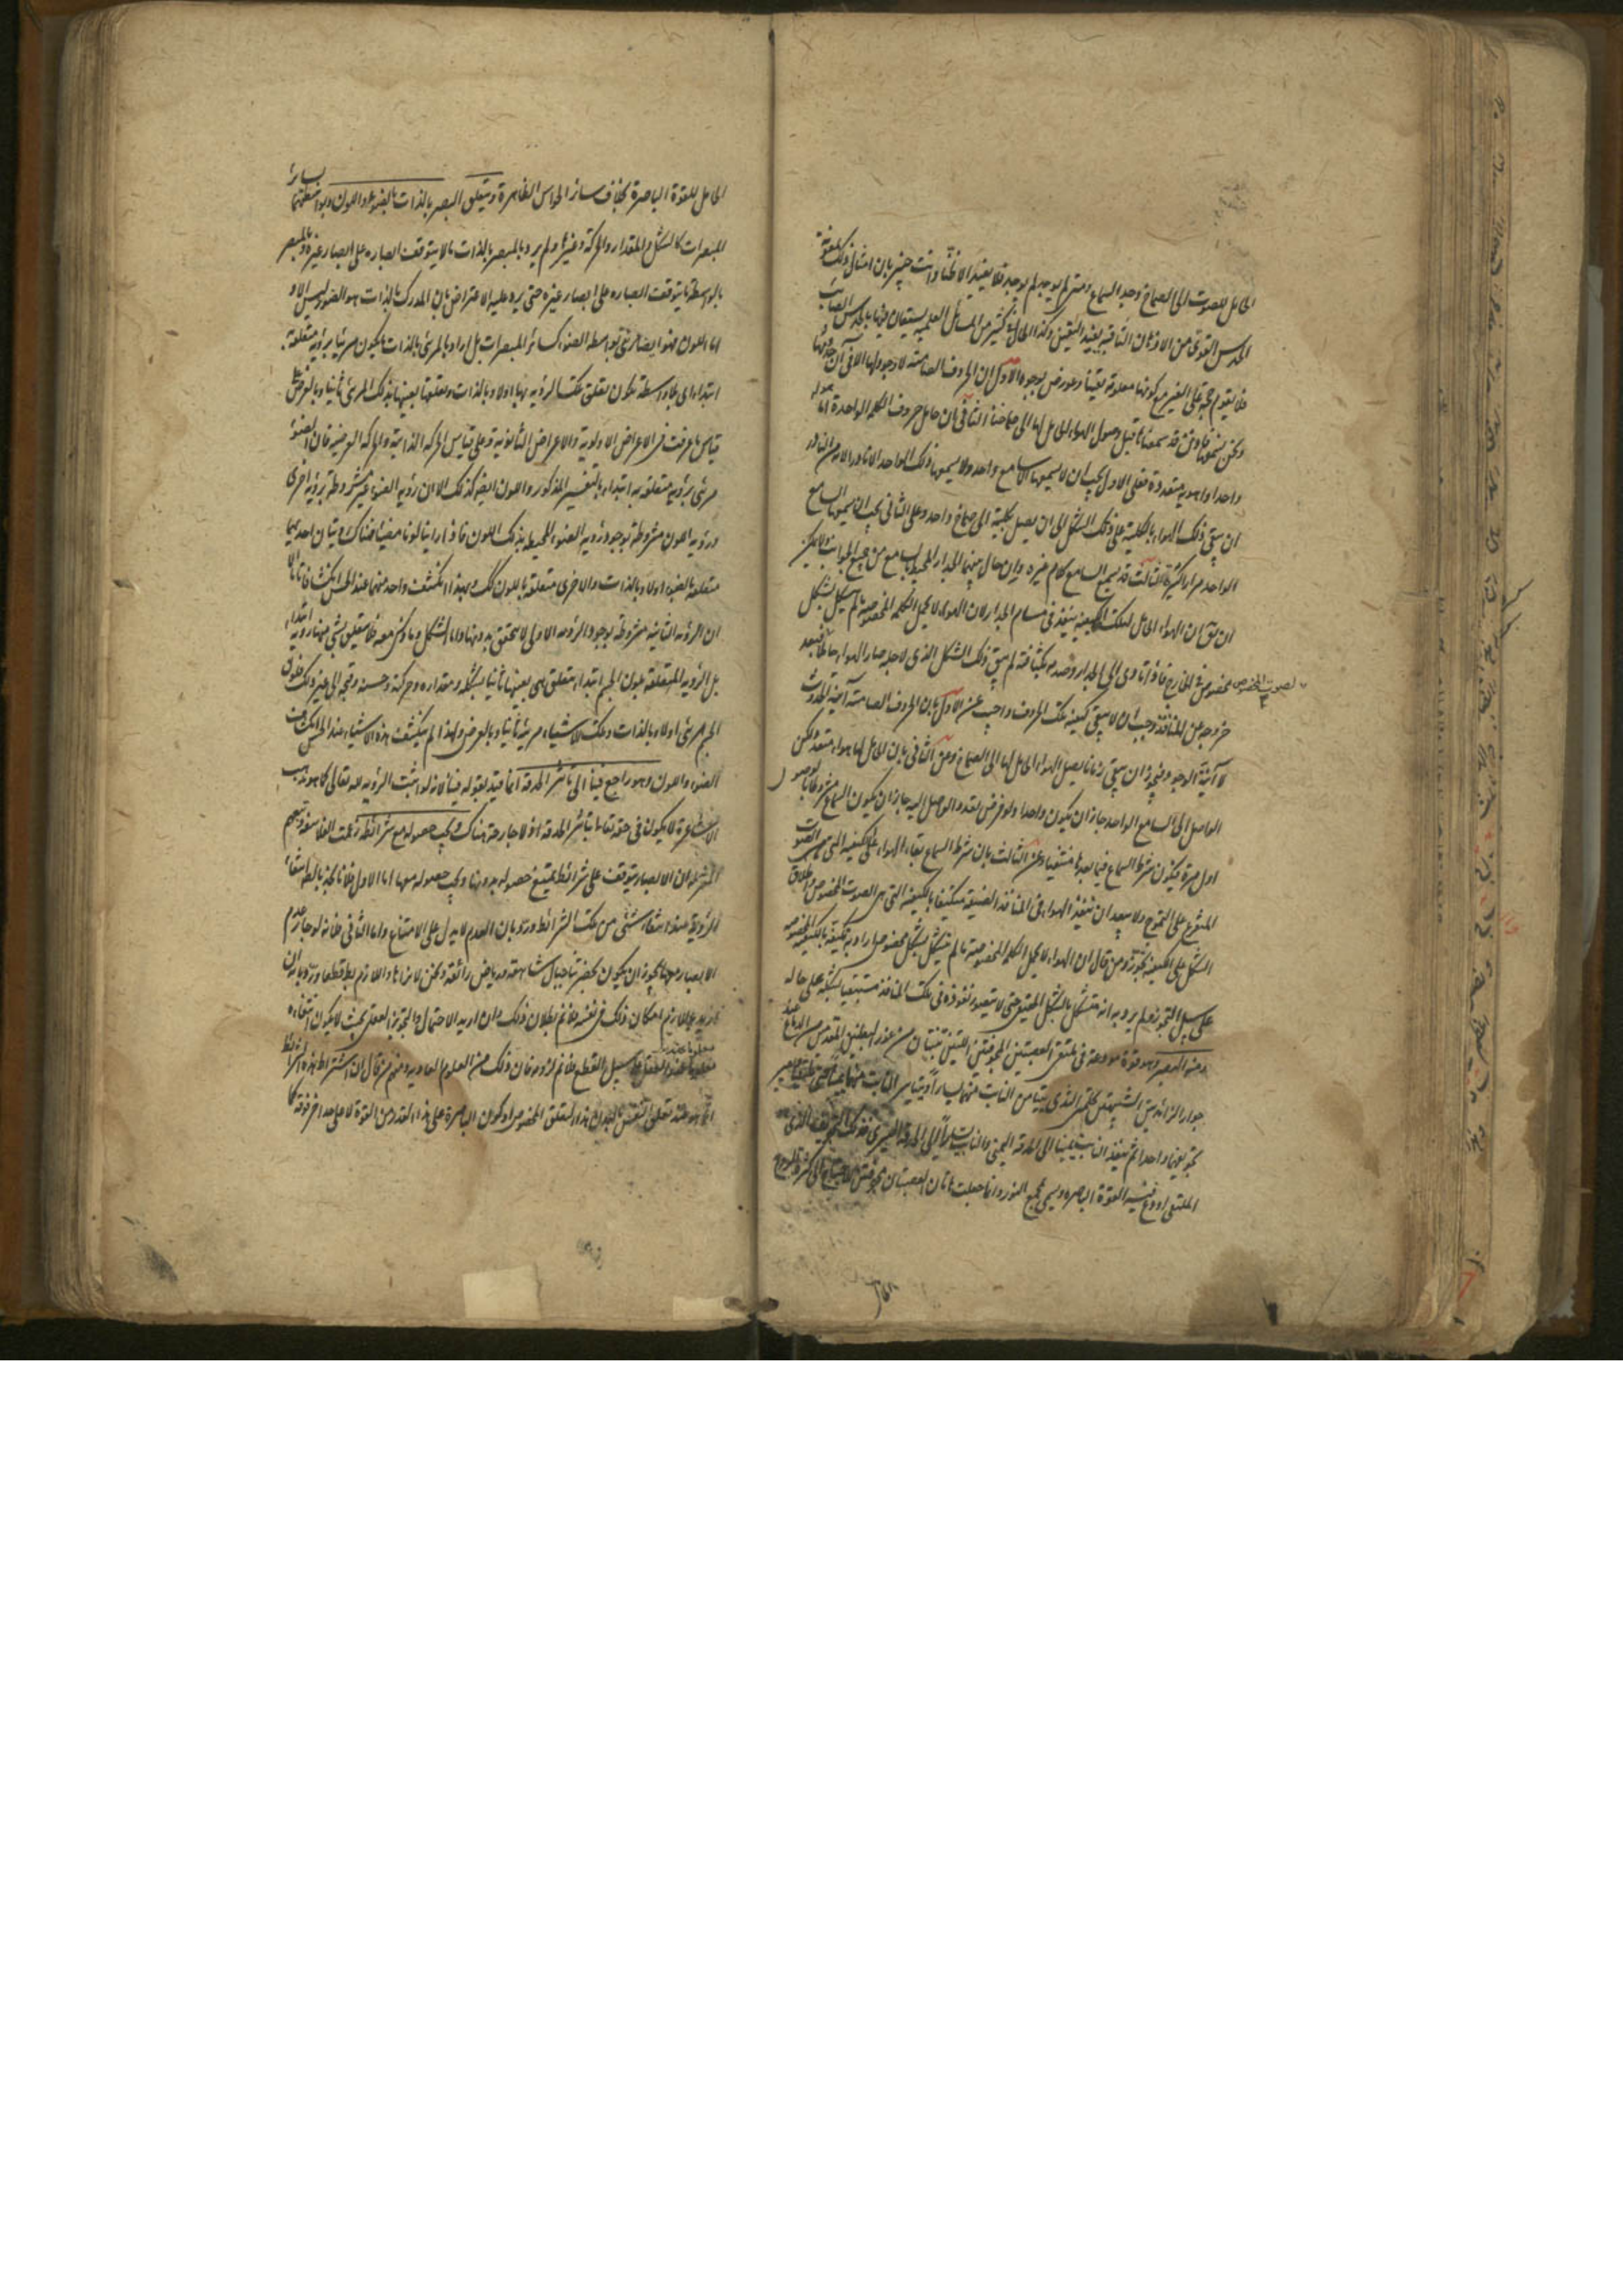 الحامل للصوت الى الصماخ وجد السماع ومتى لم يوجد لم يوجد فلا يفيد الا ظنا وانت خبير بان امثال ذلك بمعونة
الحدس القوى من الاذهان الثاقبة يفيد اليقين وكذا الحال فى كثير من المسائل العلمية يستعان فيها بالحدس الصائب
فلا يقوم حجة على الغير مع كونها معلومة يقينا وعورض بوجوه الاول ان الحروف الصامتة لا وجود لها الا فى آن حدوثها
ونحن نسمعها وقد سمعناها قبل وصول الهواء الحامل لها الى صماخنا الثانى ان حامل حروف الكلمة الواحدة اما هواء
واحد او اهوية متعددة فعلى الاول يجب ان لا يسمعها الا سامع واحد ولا يسمعها ذلك الواحد الا نادرا لان من النادر
ان يبقى ذلك الهواء بالكلية على ذلك الشكل الى ان يصل بكليته الى صماخ واحد وعلى الثانى يجب ان يسمعها السامع
الواحد مرارا كثيرة الثالث قد يسمع السامع كلام غيره وان حال بينهما الجدار المحيط بالسامع من جميع الجوانب ولا يمكن
ان يقال ان الهواء الحامل لتلك الكيفية ينفذ فى مسام الجدار لان الهواء لا يحمل الكلمة المخصوصة ما لم يتشكل بشكل
مخصوص فى الخارج فاذا تأدى الى الجدار وصدمه بكثافته لم يبق ذلك الشكل الذى لاجله صار الهواء حاملا فبعد
لصوت المخصوص
خروجه عن المنافذ وجب ان لا يبقى كيفية تلك الحروف واجيب عن الاول بان الحروف الصامتة آنية الحدوث
لا آنية الوجود فيجوز ان يبقى زمانا يصل الهواء الحامل لها الى الصماخ وعن الثانى بان الحامل لها هواء متعدد لكن
الواصل الى السامع الواحد جاز ان يكون واحدا ولو فرض تعدد الواصل اليه جاز ان يكون السماع مشروطا بالوصول
اول مرة فيكون شرط السماع فيما بعدها منتفيا وعن الثالث بان شرط السماع بقاء الهواء على الكيفية التى هى الصوت
المتفرع على التموج ولا يبعد ان ينفذ الهواء فى المنافذ الضيقة متكيفا بالكيفية التى هى الصوت المخصوص واطلاق
الشكل على الكيفية تجوز ومن قال ان الهواء لا يحمل الكلمة المخصوصة ما لم يتشكل بشكل مخصوص اراد به تكيفه بالكيفية المخصوصة
على سبيل التجوز ولم يرد به انه متشكل بالشكل الحقيقى حتى لا يتصور نفوذه فى تلك المنافذ مستبقيا لشكله على حاله
ومنه البصر وهو قوة مودعة فى ملتقى العصبتين المجوفتين اللتين تنبتان من غور البطنين المقدمين من الدماغ عند
جوار الزائدتين الشبيهتين بحلمتى الثدى يتيامن النابت منهما يسارا ويتياسر النابت منهما يمينا حتى يلتقيا ويصير
تجويفهما واحدا ثم ينفذ النابت يمينا الى الحدقة اليمنى والنابت يسارا الى الحدقة اليسرى فذلك التجويف الذى هو
الملتقى اودع فيه القوة الباصرة ويسمى مجمع النور وانما جعلت هاتان العصبتان مجوفتين للاحتياج الى كثرة الروح
الحامل للقوة الباصرة بخلاف سائر الحواس الظاهرة ويتعلق البصر بالذات بالضوء واللون وبواسطتهما بسائر
المبصرات كالشكل والمقدار والحركة وغيرها ولم يرد بالمبصر بالذات ما لا يتوقف ابصاره على ابصار غيره وبالمبصر
بالواسطة ما يتوقف ابصاره على ابصار غيره حتى يرد عليه الاعتراض بان المدرك بالذات هو الضوء ليس الا و
اما اللون فهو ايضا مرئى بواسطة الضوء كسائر المبصرات بل اراد بالمرئى بالذات ما يكون مرئيا برؤية متعلقة به
ابتداء اى بلا واسطة يكون تعلق تلك الرؤية بها اولا وبالذات وتعلقها بعينها بذلك المرئى ثانيا وبالعرض على
قياس ما عرفت فى الاعراض الاولية والاعراض الثانوية وعلى قياس الحركة الذاتية والحركة العرضية فان الضوء
مرئى برؤية متعلقة به ابتداء بالتفسير المذكور واللون ايضا كذلك الا ان رؤية الضوء غير مشروطة برؤية اخرى
ورؤية اللون مشروطة بوجود رؤية الضوء المحيط بذلك اللون فاذا راينا لونا مضيئا فهناك رؤيتان احديهما
متعلقة بالضوء اولا وبالذات والاخرى متعلقة باللون كذلك ولهذا انكشف واحد منهما عند الحس انكشافا تاما الا
ان الرؤية الثانية مشروطة بوجود الرؤية الاولى لا يتحقق بدونها واما الشكل وما ذكر معه فلا يتعلق بشئ منها رؤية ابتداء
بل الرؤية المتعلقة بلون الجسم ابتداء متعلق هى بعينها ثانيا بشكله ومقداره وحركته وحسنه وقبحه الى غير ذلك فلون
الجسم مرئى اولا وبالذات وتلك الاشياء مرئية ثانيا وبالعرض ولهذا لم ينكشف هذه الاشياء عند الحس انكشاف
الضوء واللون وهو راجع فينا الى تأثر الحدقة انما قيد بقوله فينا لانه لو اثبت الرؤية لله تعالى كما هو مذهب
الاشاعرة لا يكون فى حقه تعالى بتأثر الحدقة اذ لا جارحة هناك ويجب حصوله مع شرائطه زعمت الفلاسفة وتبعهم
المعتزلة ان الابصار يتوقف على شرائط يمتنع حصوله بدونها ويجب حصوله معها اما الاول فلانا نجد بالضرورة انتفاء
الرؤية عند انتفاء شئ من تلك الشرائط ورد بان العدم لا يدل على الامتناع واما الثانى فلانه لو جاز عدم
الابصار معها لجاز ان يكون بحضرتنا جبال شاهقة ورياض رائقة ونحن لا نراها واللازم باطل قطعا ورد بانه ان
اريد باللازم امكان ذلك فى نفسه فلا نم بطلان ذلك وان اريد الاحتمال والتجويز العقلى بحيث لا يكون انتفاؤه
معلوما عند العقل على سبيل القطع فلا نم لزومه فان ذلك من العلوم العادية ومنهم من قال ان اشتراط هذه الشرائط
انما هو عند تعلق النفس بالبدن هذا التعلق المخصوص او كون الباصرة على هذا القدر من القوة لا على حد آخر فوقه كما